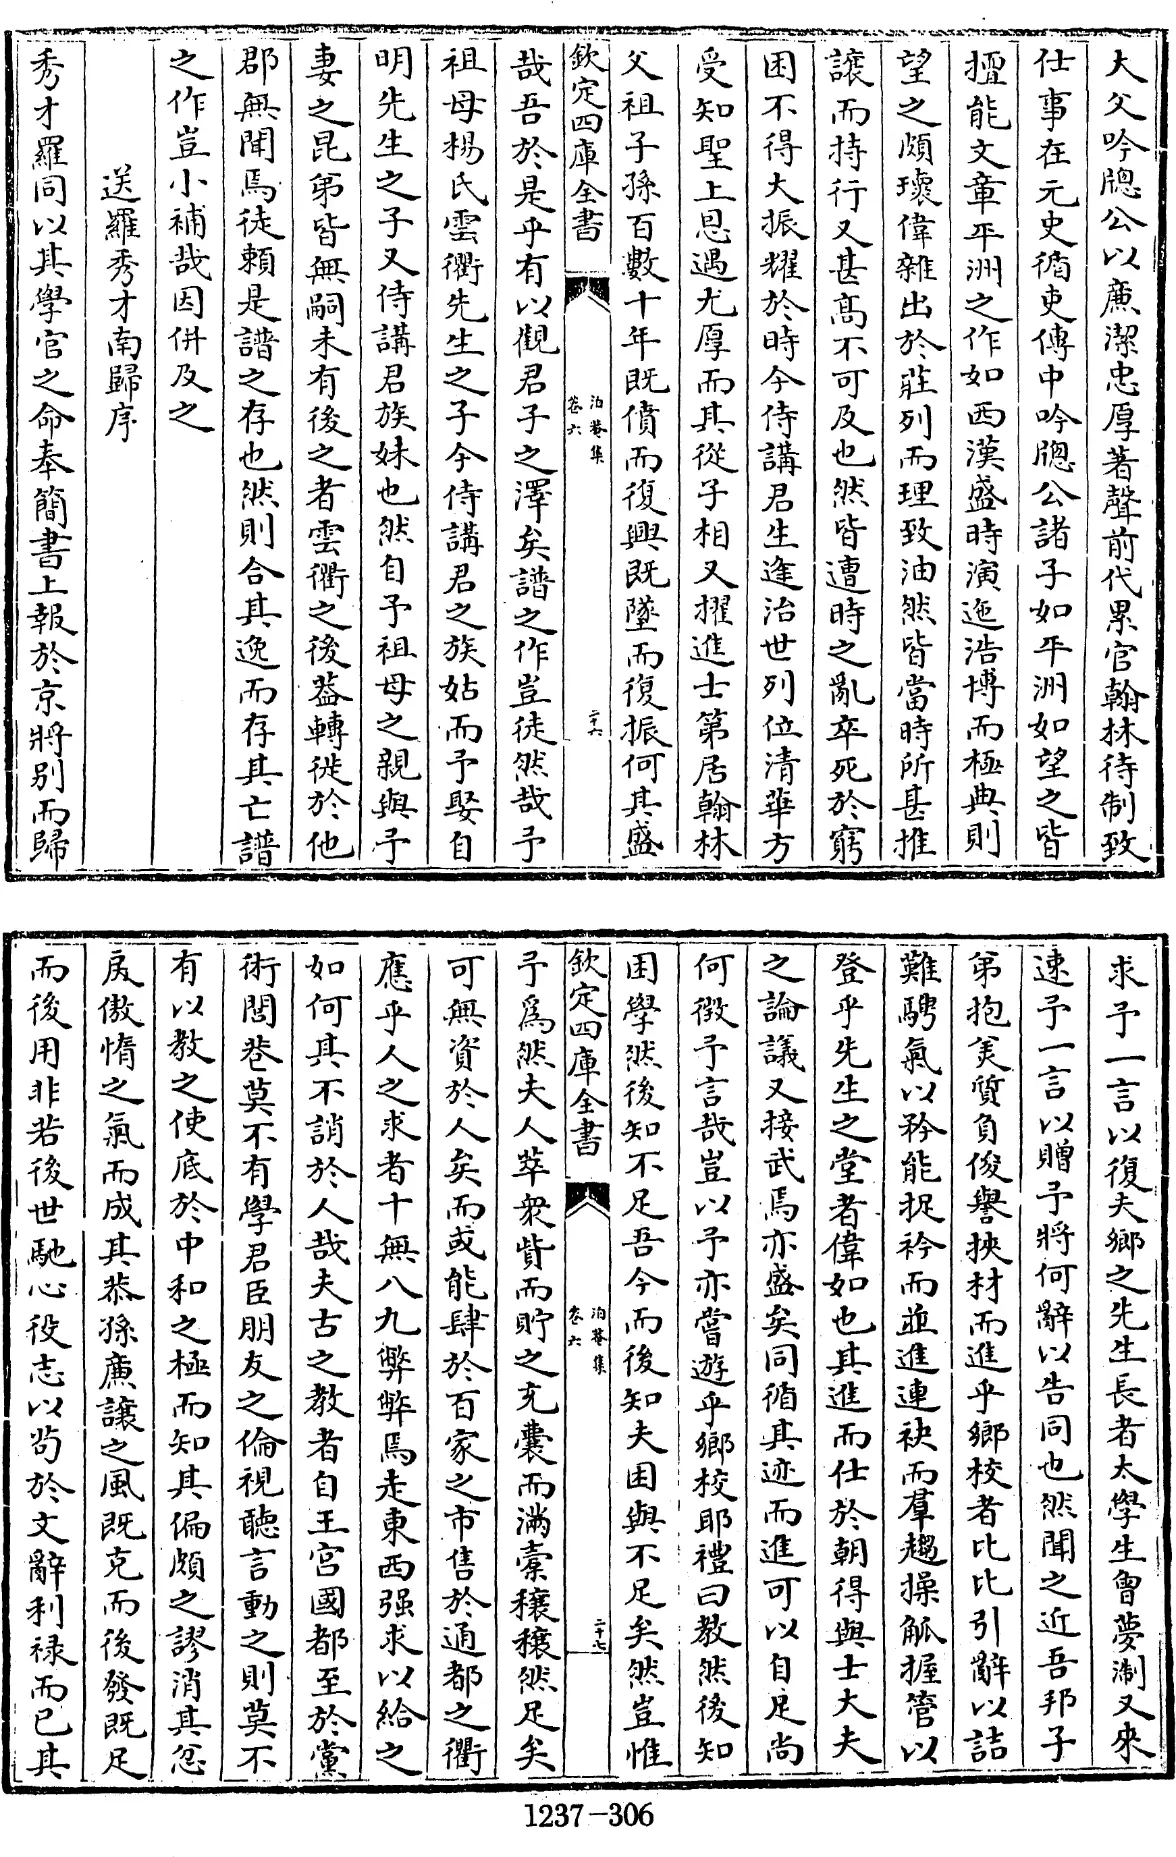 大父吟牕公以亷潔忠厚著聲前代累官翰林待制致
仕事在元史循吏傳中吟牕公諸子如平洲如望之皆
擅能文章平洲之作如西漢盛時演迤浩博而極典則
望之頗瓌偉雜出於莊列而理致油然皆當時所甚推
讓而持行又甚髙不可及也然皆遭時之亂卒死於窮
困不得大振耀於時今侍講君生逢治世列位清華方
受知聖上恩遇尤厚而其從子相又擢進士第居翰林
父祖子孫百數十年既僨而復興既墜而復振何其盛
欽定四庫全書
泊菴集
卷六
二十六
哉吾於是乎有以觀君子之澤矣譜之作豈徒然哉予
祖母楊氏雲衢先生之子今侍講君之族姑而予娶自
明先生之子又侍講君族妹也然自予祖母之親與予
妻之昆弟皆無嗣未有後之者雲衢之後葢轉徙於他
郡無聞焉徒賴是譜之存也然則合其逸而存其亡譜
之作豈小補哉因併及之
送羅秀才南歸序
秀才羅同以其學官之命奉簡書上報於京將别而歸
求予一言以復夫鄉之先生長者太學生曾夢淛又來
速予一言以贈予將何辭以告同也然聞之近吾邦子
弟抱美質負俊譽挾材而進乎鄉校者比比引辭以詰
難騁氣以矜能捉衿而並進連袂而羣趨操觚握管以
登乎先生之堂者偉如也其進而仕於朝得與士大夫
之論議又接武焉亦盛矣同循其迹而進可以自足尚
何徴予言哉豈以予亦嘗遊乎鄉校耶禮曰教然後知
困學然後知不足吾今而後知夫困與不足矣然豈惟
欽定四庫全書
泊菴集
卷六
二十七
予爲然夫人萃衆貲而貯之充囊而滿橐穰穰然足矣
可無資於人矣而或能肆於百家之市售於通都之衢
應乎人之求者十無八九弊弊焉走東西强求以給之
如何其不誚於人哉夫古之教者自王宫國都至於黨
術閭巷莫不有學君臣朋友之倫視聽言動之則莫不
有以教之使底於中和之極而知其偏頗之謬消其忿
戾傲惰之氣而成其恭孫亷讓之風既充而後發既足
而後用非若後世馳心役志以茍於文辭利禄而已其
1237-306